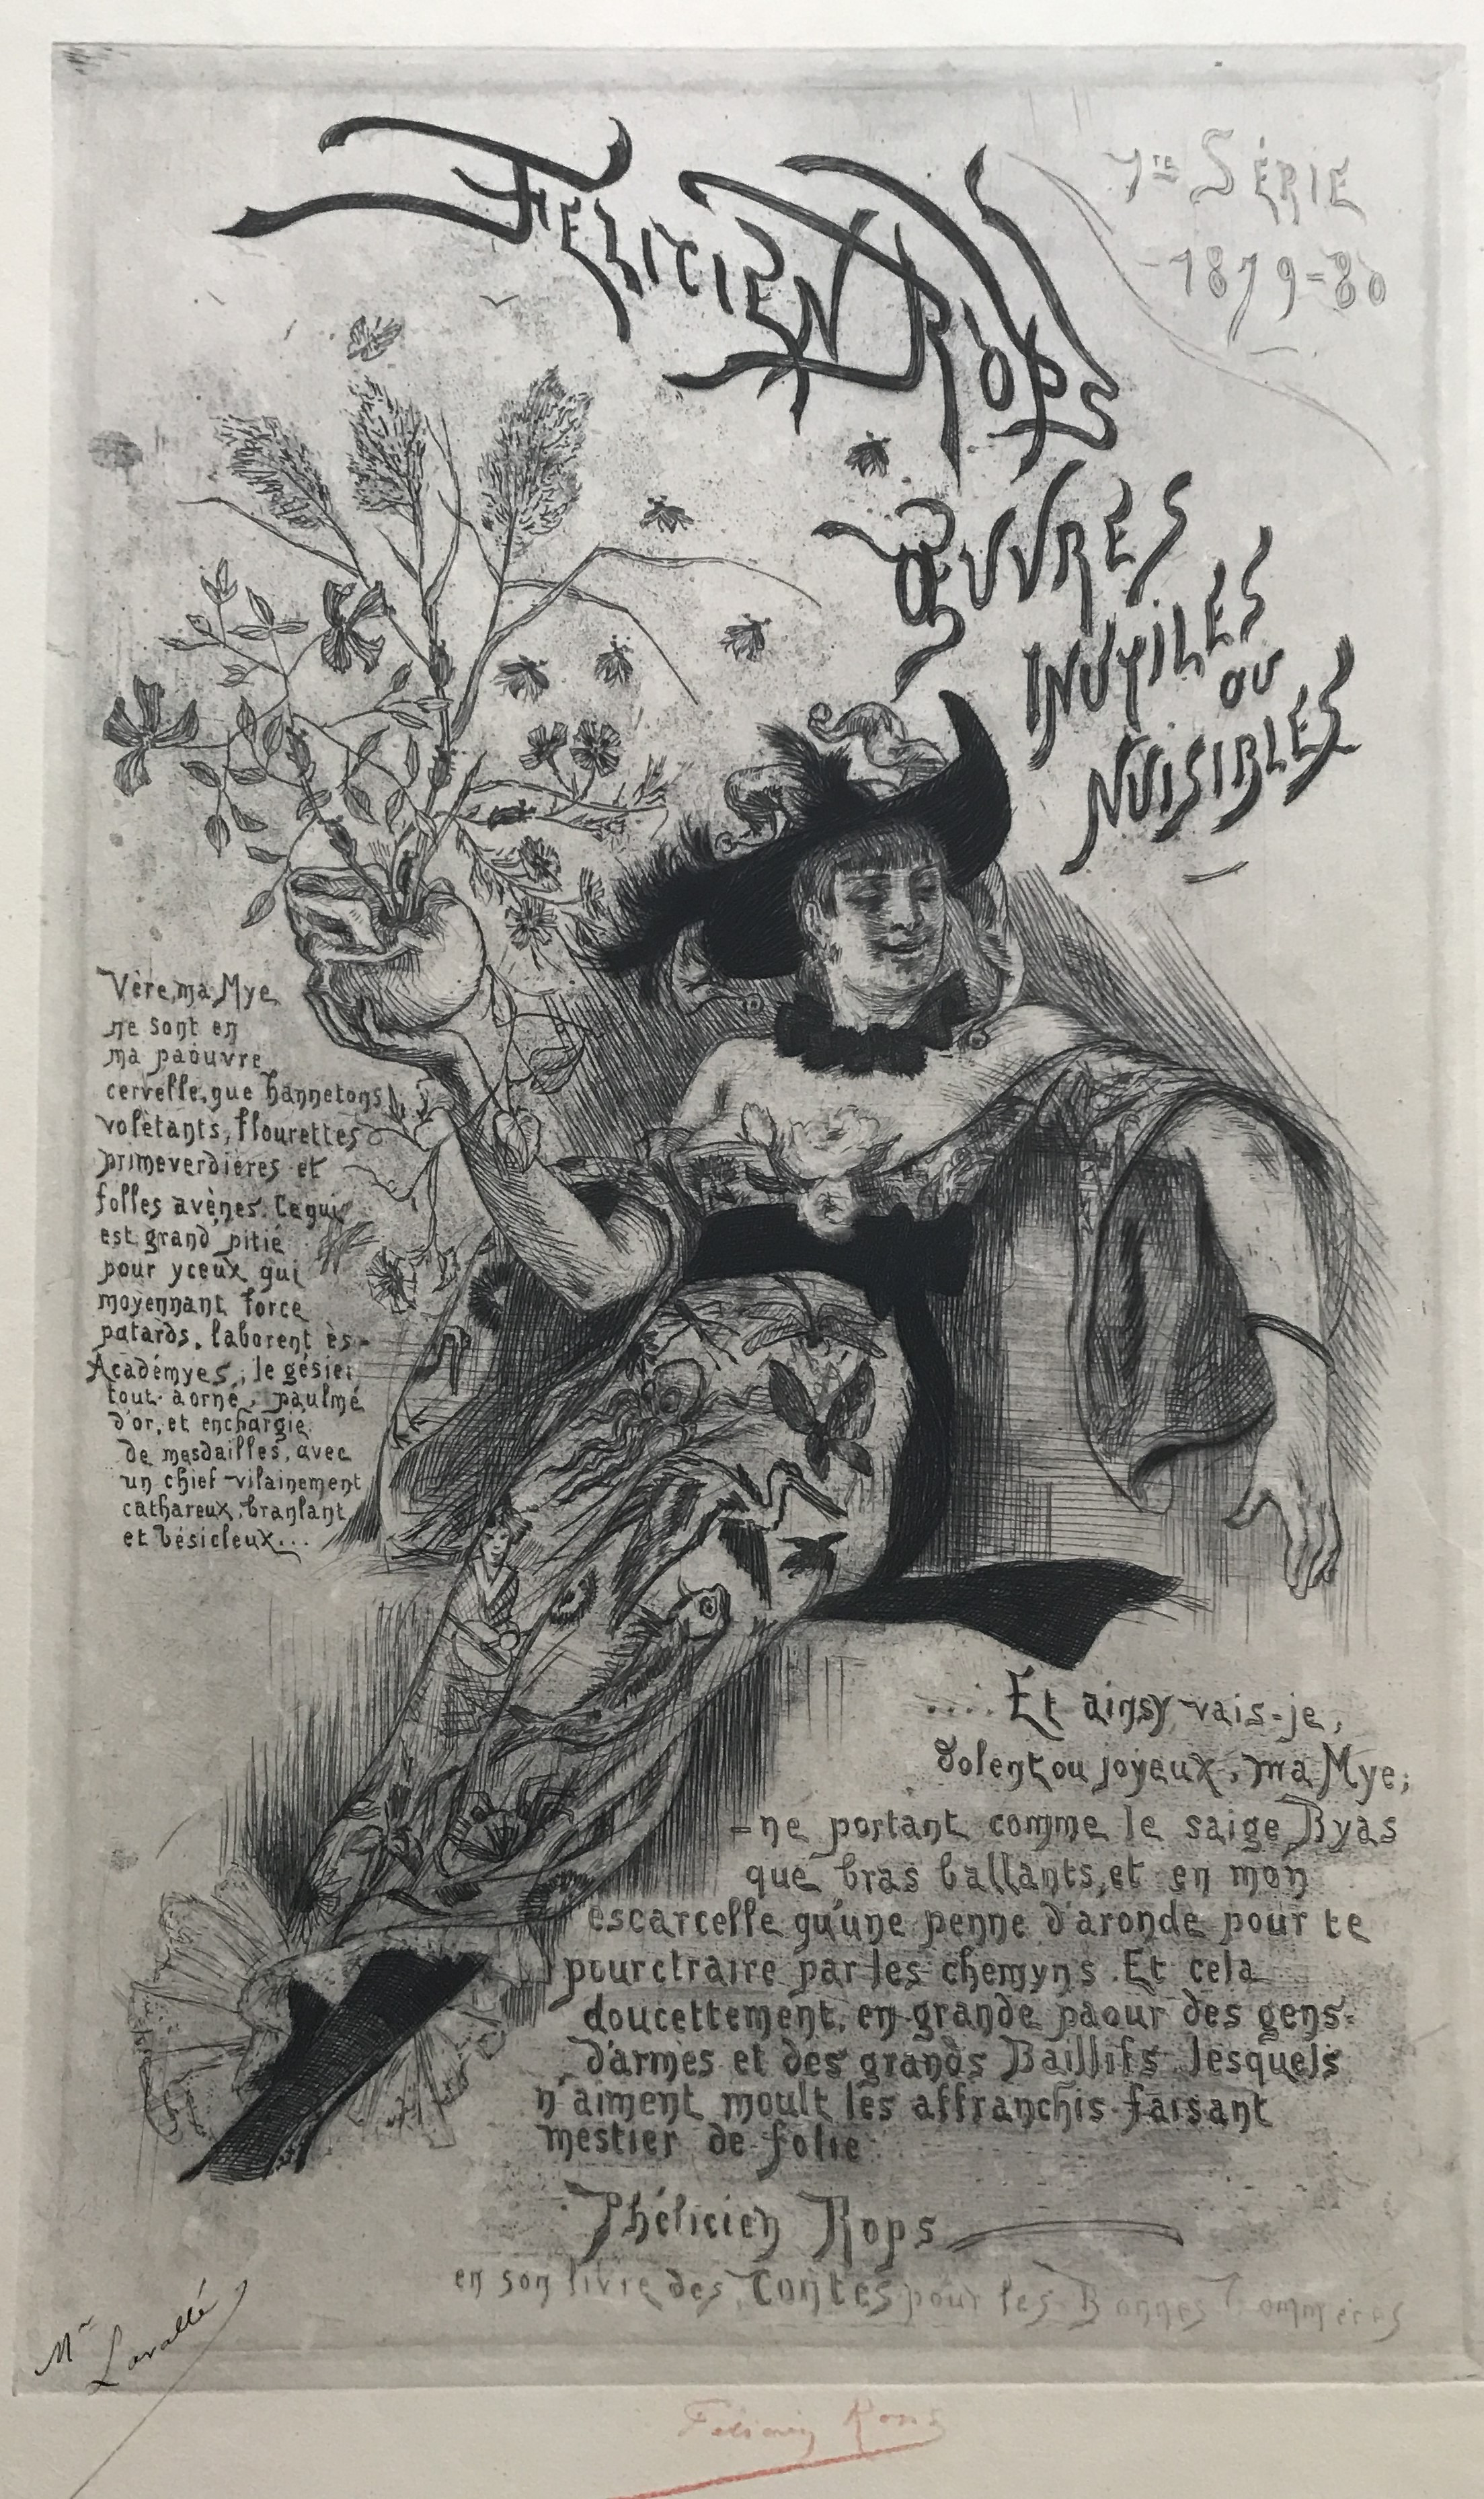 FÉLICIEN ROPS
1RE SÉRIE
-1879-80
ŒUVRES
INUTILES
OU
NUISIBLES
Vère, ma Mye
ne sont en
ma paouvre
cervelle, que hannetons
volètants, flourettes
primeverdières et
folles avènes. Ce qui
est grand pitié
pour yceux qui
moyennant force
patards, laborent ès-
Académyes, le gésier
tout aorné, paulmé
d'or, et enchargié
de mesdailles, avec
un chief vilainement
cathareux, branlant
et bésicleux...
.... Et ainsy vais-je,
dolent ou joyeux, ma Mye;
=ne portant comme le saige Byas
que bras ballants, et en mon
escarcelle qu'une penne d'aronde pour te
pourctraire par les chemyns. Et cela
doucettement, en grande paour des gens-
d'armes et des grands Baillifs lesquels
n'aiment moult les affranchis faisant
mestier de folie
Phélicien Rops
en son livre des Contes pour les Bonnes Commères
Mr
Lavallé
Félicien Rops